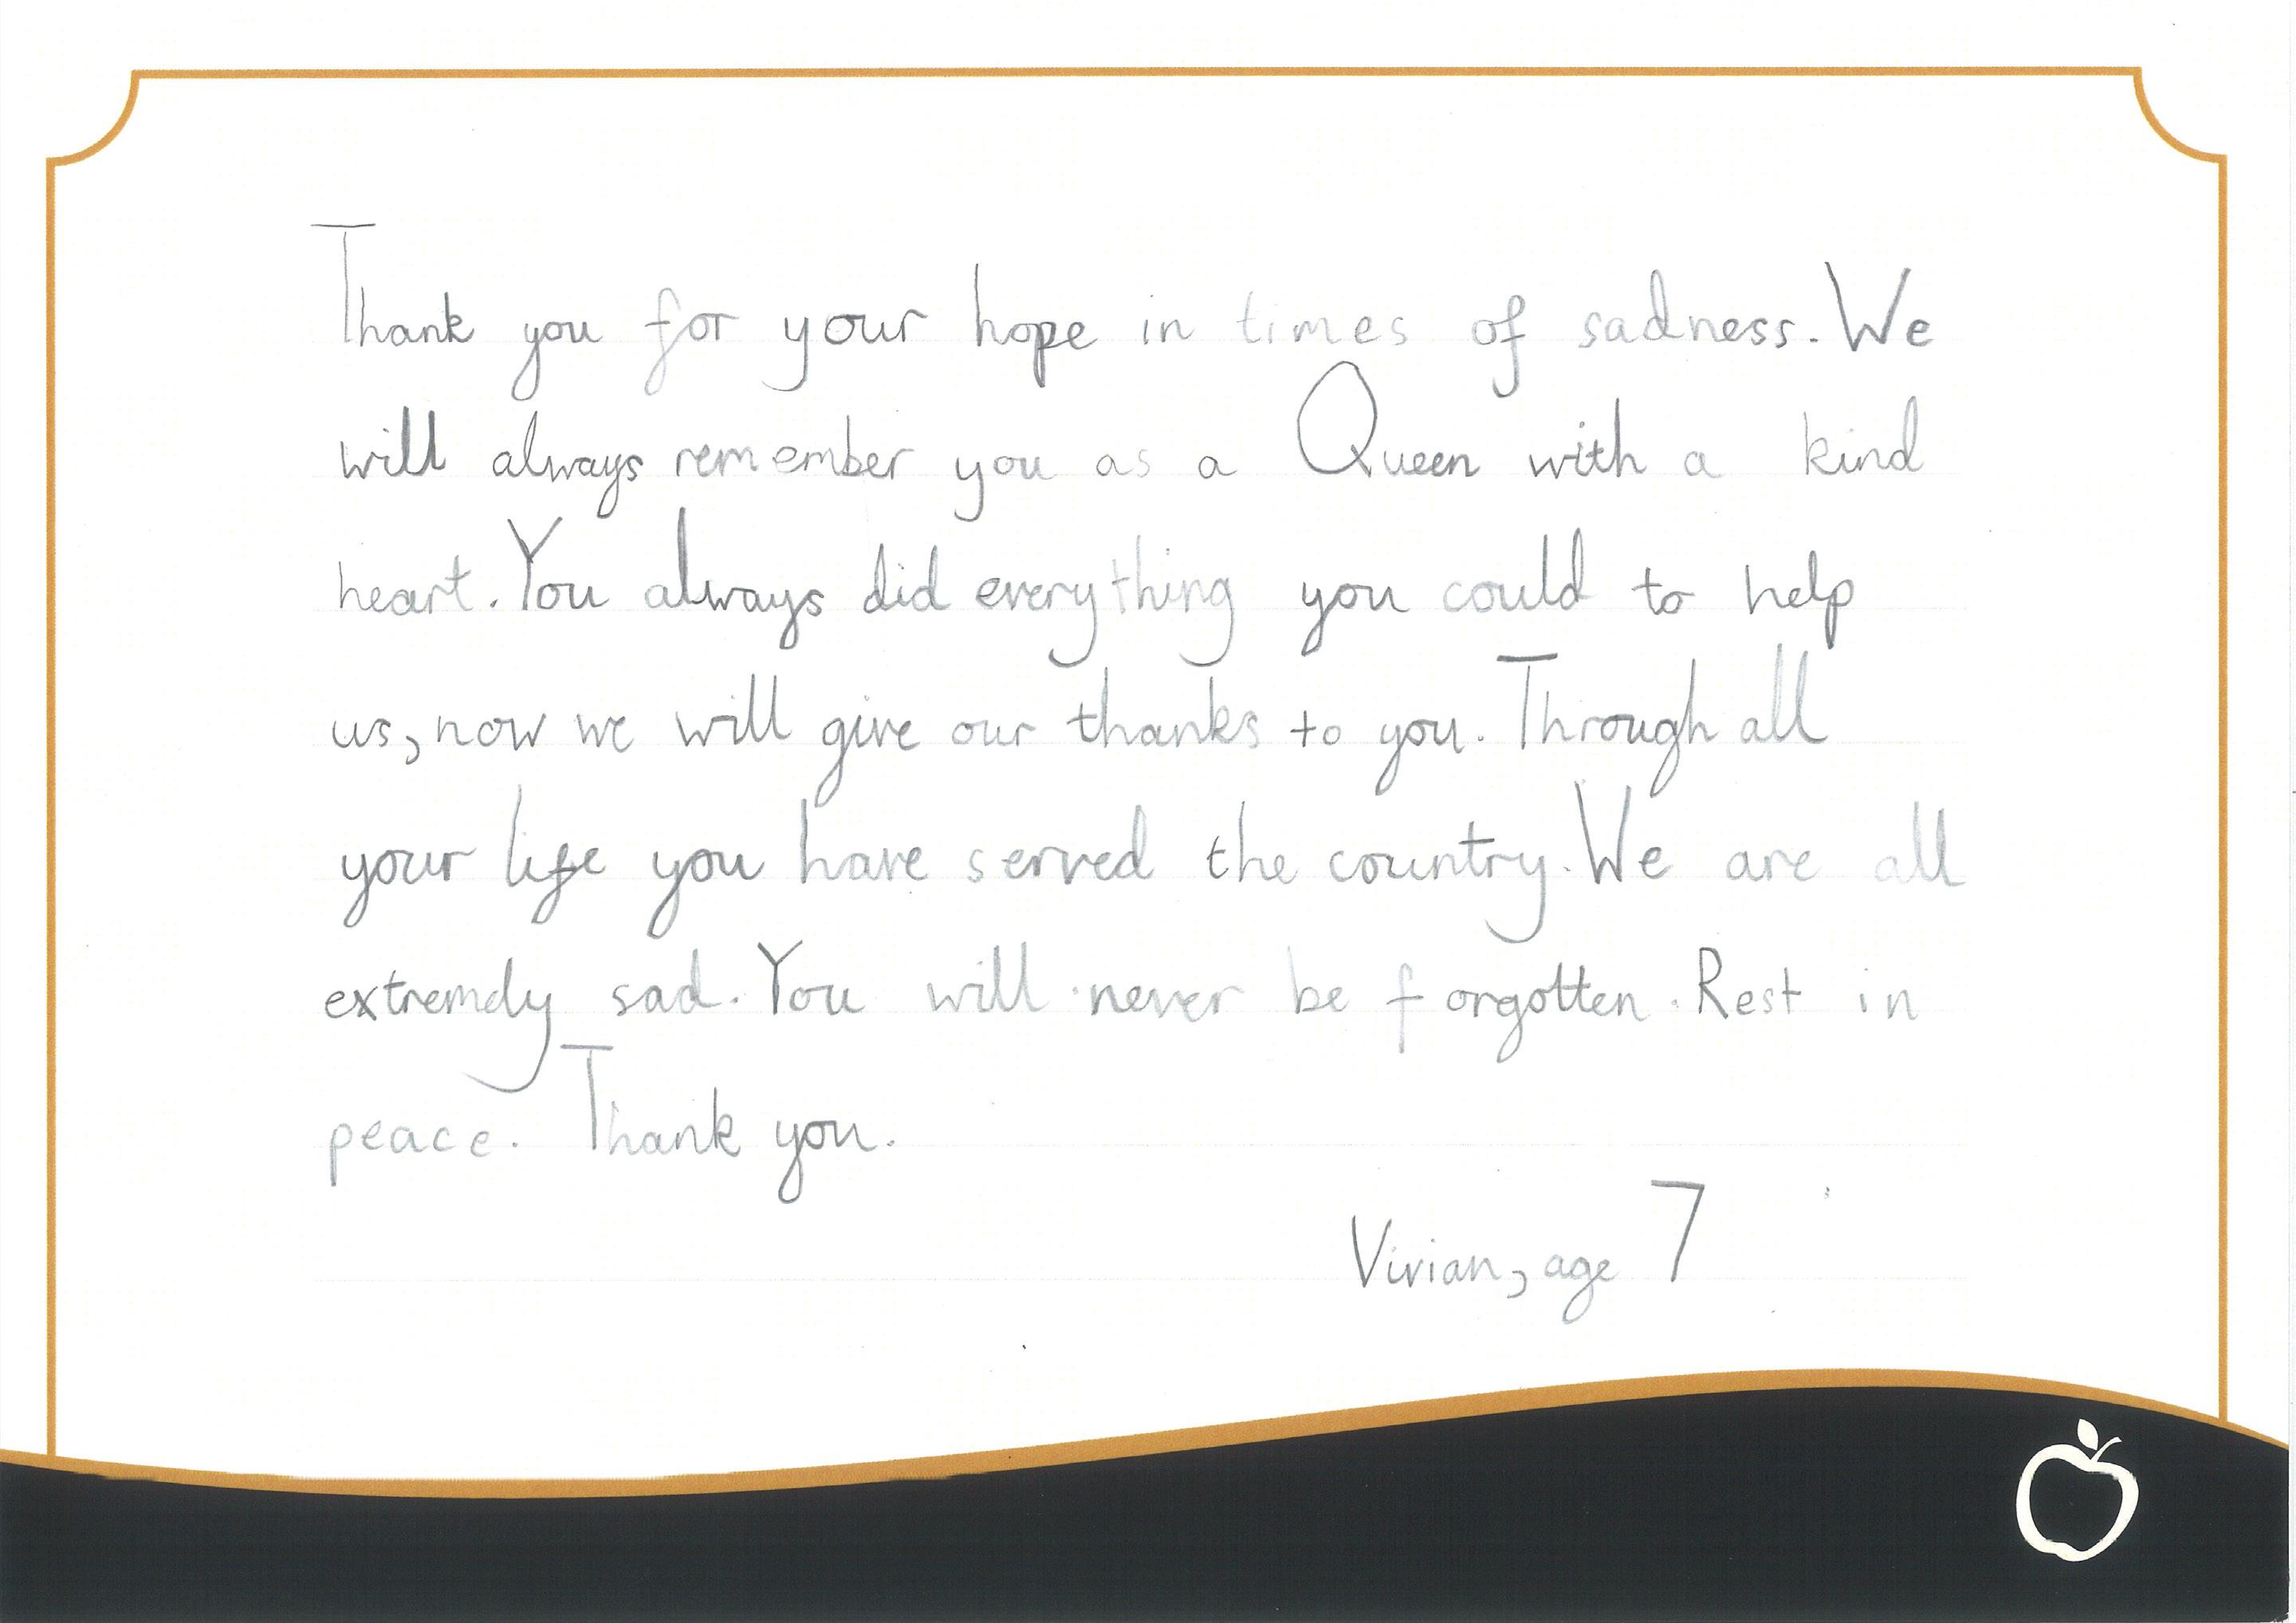 Thank you for your hope in times of sadness. We
will always remember you as a Queen with a kind
heart. You always did everything you could to help
us, now we will give our thanks to you. Through all
your life you have served the country. We are all
extremely sad. You will never be forgotten. Rest in
peace. Thank you.
Vivian, age 7